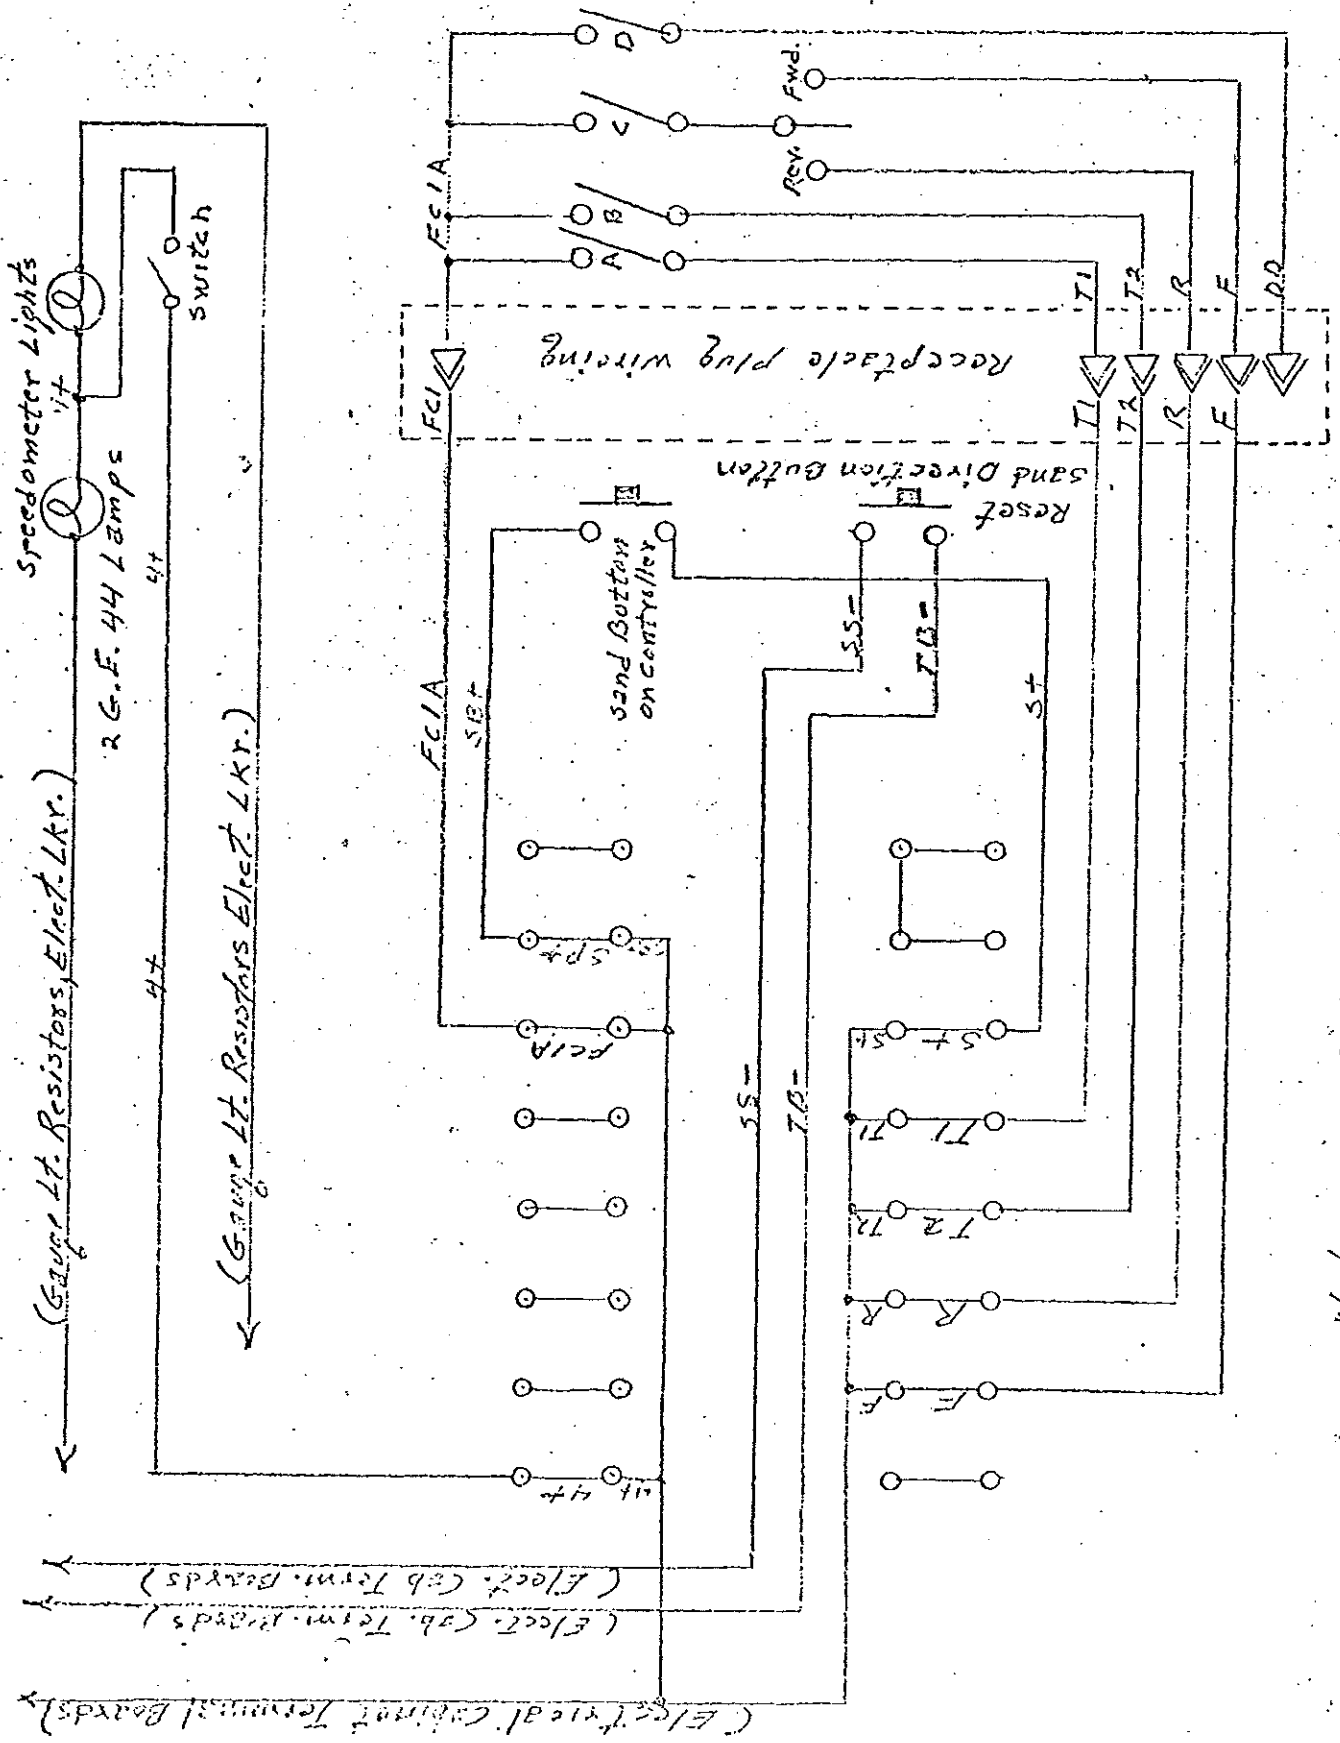 Speedometer Lights
4+
2 G.E. 44 Lamps
Switch
4+
4+
(Gauge Lt. Resistors, Elect. Lkr.)
(Gauge Lt. Resistors Elect. Lkr.)
FC1A
D
C
B
A
Fwd.
Rev.
T1
T2
R
F
DD
Receptacle Plug wireing
FC1
T1
T2
R
F
Sand Direction Button
Reset
Sand Button
on Controller
FC1A
SB+
SS-
TB-
S+
SP+
FC1A
SS-
TB-
S+
S+
T1
T1
T2
T2
R
R
F
F
4+
4+
(Elect. Cab Term. Boards)
(Elect. Cab. Term. Boards)
(Electrical Cabinet Terminal Boards)